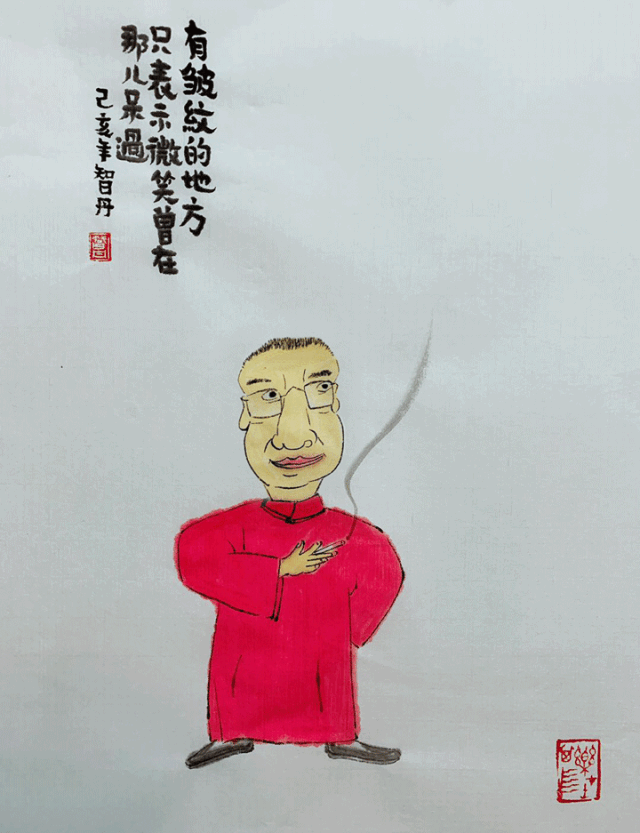 有皱紋的地方
只表示微笑曾在
那儿呆過
己亥年智丹